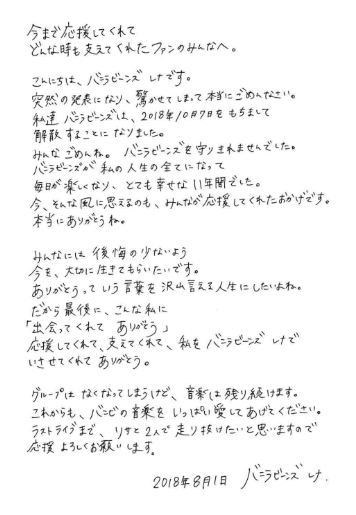 今まで応援してくれて
どんな時も支えてくれたファンのみんなへ。
こんにちは、バニラビーンズ レナです。
突然の発表になり、驚かせてしまって本当にごめんなさい。
私達バニラビーンズは、2018年10月7日をもちまして
解散することになりました。
みんなごめんね。バニラビーンズを守りきれませんでした。
バニラビーンズが私の人生の全てになって
毎日が楽しくなり、とても幸せな11年間でした。
今、そんな風に思えるのも、みんなが応援してくれたおかげです。
本当にありがとうね。
みんなには後悔の少ないよう
今を、大切に生きてもらいたいです。
ありがとうって いう言葉を沢山言える人生にしたいよね。
だから最後に、こんな私に
「出会ってくれて ありがとう」
応援してくれて、支えてくれて、私をバニラビーンズ レナで
いさせてくれて ありがとう。
グループはなくなってしまうけど、音楽は残り続けます。
これからも、バニビの音楽をいっぱい愛してあげてください。
ラストライブまで、リサと2人で走り抜けたいと思いますので
応援よろしくお願いします。
2018年8月1日 バニラビーンズ レナ.